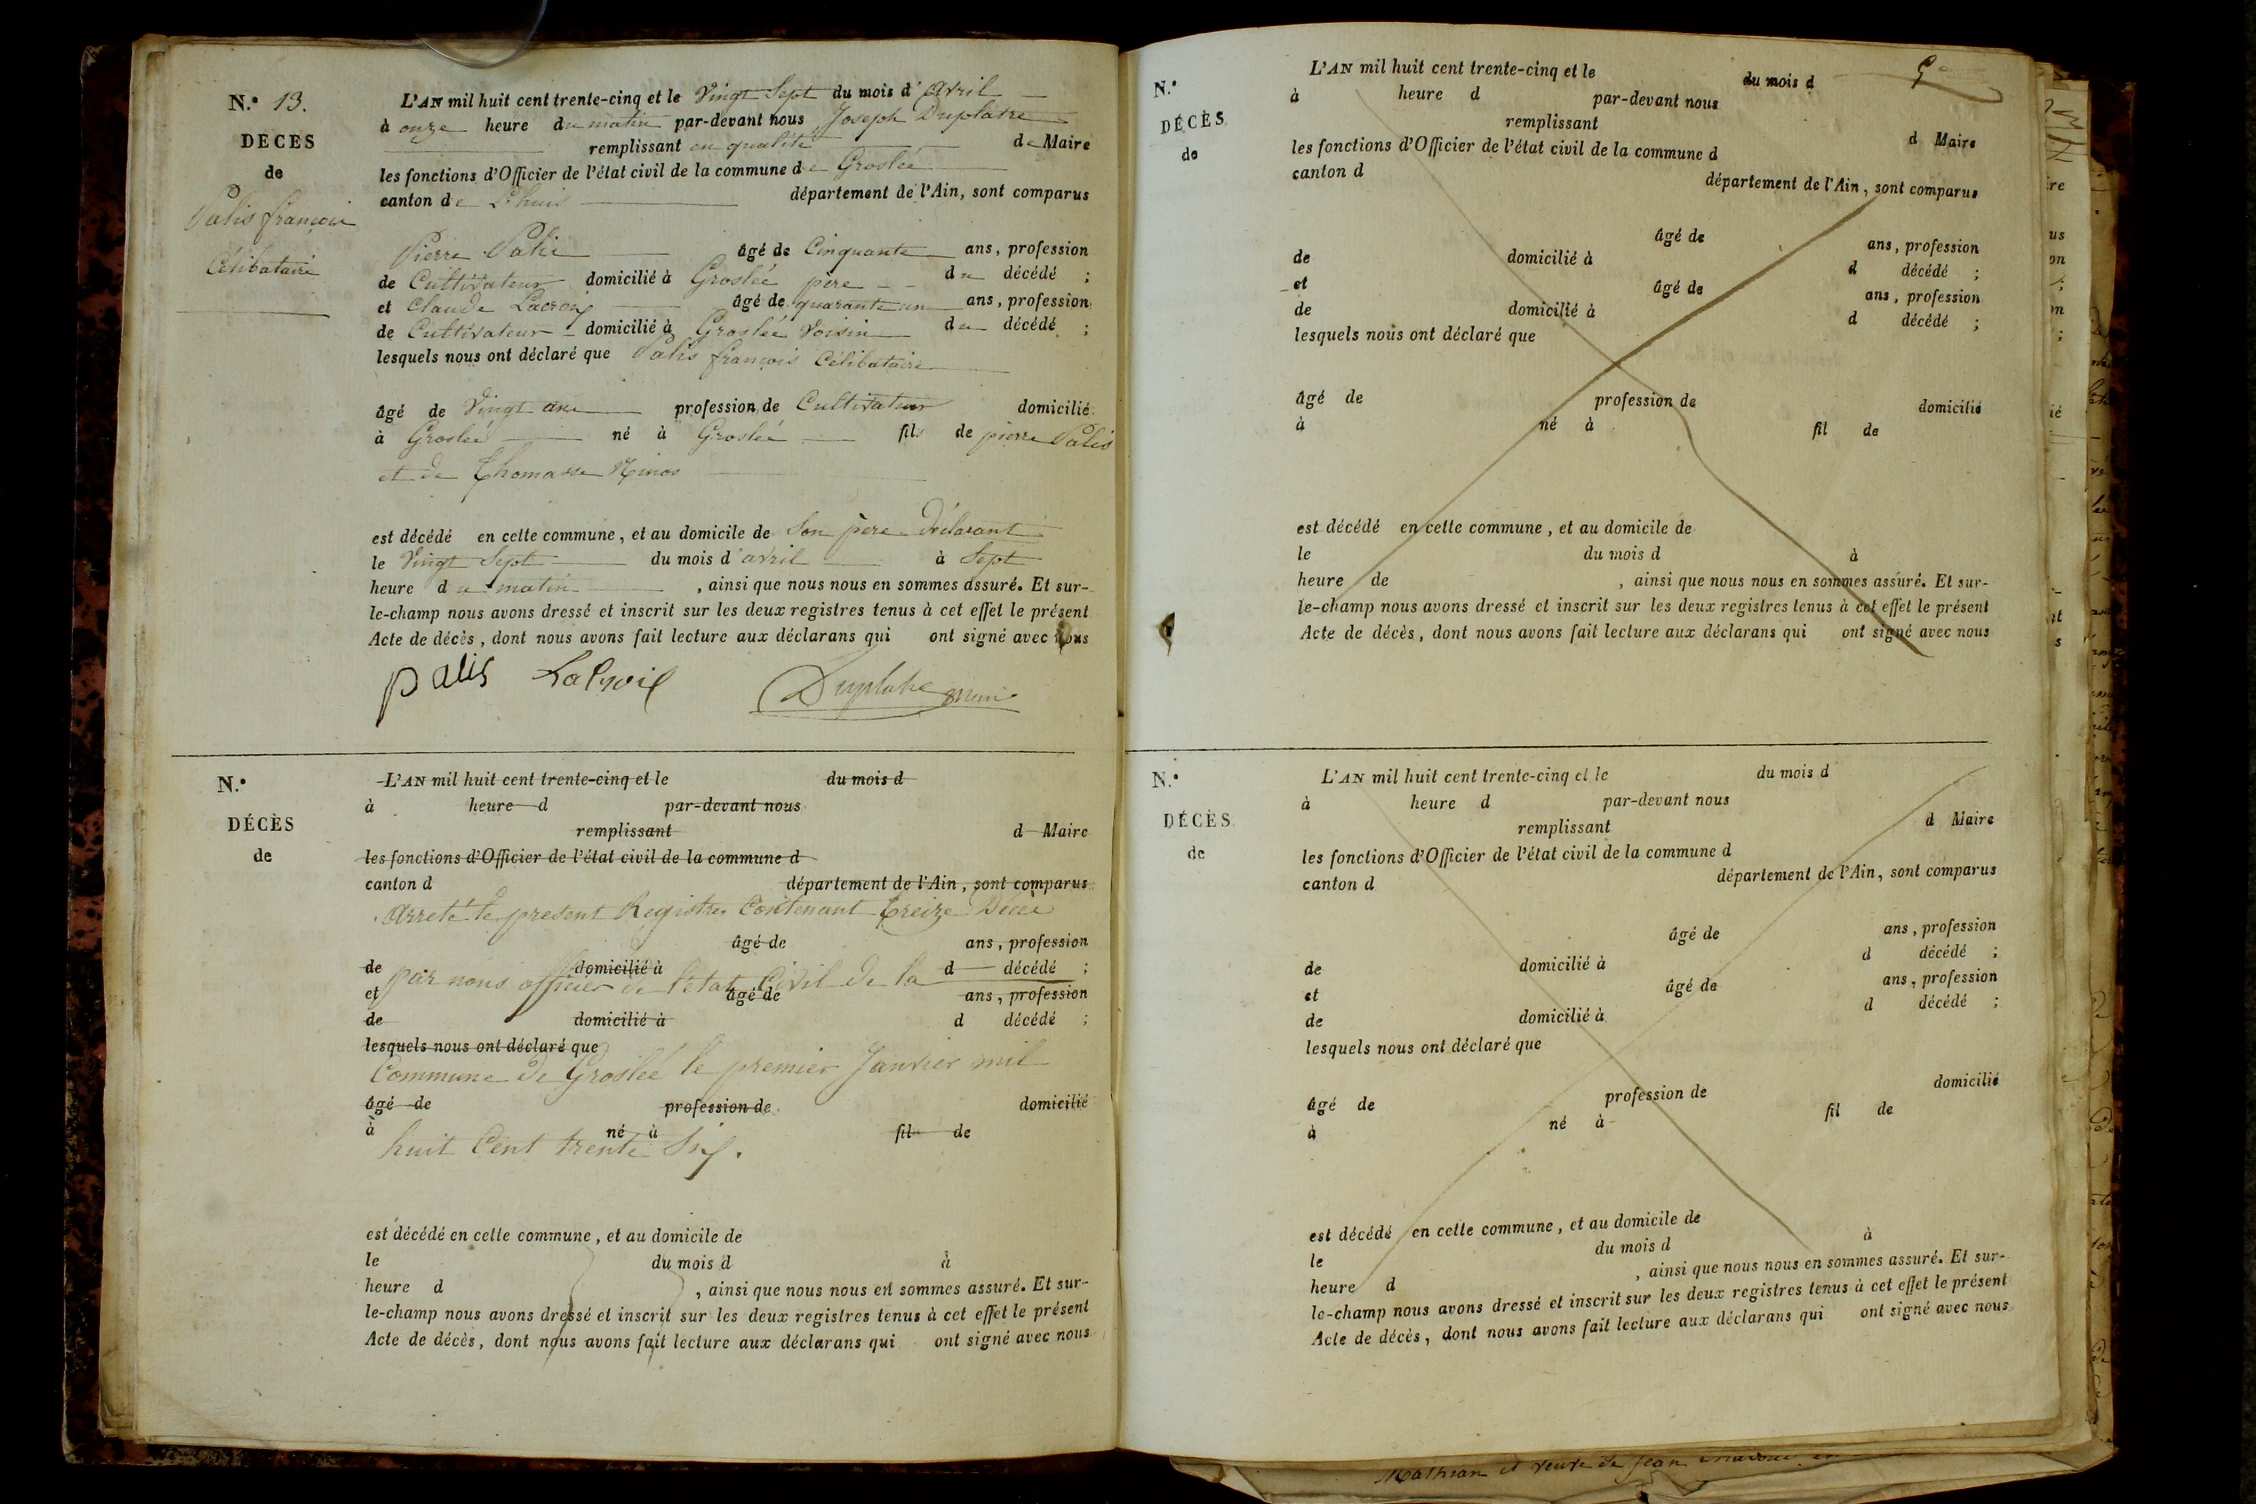 N.° 13.
DECES
de
Palis françois
Célibataire
L'AN mil huit cent trente-cinq et le Vingt Sept du mois d'avril
à onze heure du matin par-devant nous Joseph Duplatre
remplissant en qualité de Maire
les fonctions d'Officier de l'état civil de la commune de Groslée
canton de Lhuis département de l'Ain, sont comparus
Pierre Palis âgé de Cinquante ans, profession
de Cultivateur domicilié à Groslée père du décédé ;
et Claude Lacroix âgé de quarante un ans, profession
de Cultivateur domicilié à Groslée Voisin du décédé ;
lesquels nous ont déclaré que Palis françois Célibataire
âgé de Vingt ans profession de Cultivateur domicilié
à Groslée né à Groslée fils de pierre Palis
et de Thomasse
est décédé en cette commune, et au domicile de Son père Déclarant
le Vingt Sept du mois d'avril à Sept
heure du matin , ainsi que nous nous en sommes assuré. Et sur-
le-champ nous avons dressé et inscrit sur les deux registres tenus à cet effet le présent
Acte de décès, dont nous avons fait lecture aux déclarans qui ont signé avec nous
palis Duplatre maire
N.°
DÉCÈS
de
L'AN mil huit cent trente-cinq et le du mois d
à heure d par-devant nous
remplissant d Maire
les fonctions d'Officier de l'état civil de la commune d
canton d département de l'Ain, sont comparus
Arreté le present Registre Contenant treize Décè
âgé de ans, profession
de domicilié à d décédé ;
par nous officier de l'état Civil de la
et âgé de ans, profession
de domicilié à d décédé ;
lesquels nous ont déclaré que
Commune de Groslée le premier Janvier mil
âgé de profession de domicilié
à né à fil de
huit Cent trente Six.
est décédé en cette commune, et au domicile de
le du mois d à
heure d , ainsi que nous nous en sommes assuré. Et sur-
le-champ nous avons dressé et inscrit sur les deux registres tenus à cet effet le présent
Acte de décès, dont nous avons fait lecture aux déclarans qui ont signé avec nous
N.°
DÉCÈS
de
L'AN mil huit cent trente-cinq et le du mois d
à heure d par-devant nous
remplissant d Maire
les fonctions d'Officier de l'état civil de la commune d
canton d département de l'Ain, sont comparus
âgé de ans, profession
de domicilié à d décédé ;
et âgé de ans, profession
de domicilié à d décédé ;
lesquels nous ont déclaré que
âgé de profession de domicilié
à né à fil de
est décédé en cette commune, et au domicile de
le du mois d à
heure de , ainsi que nous nous en sommes assuré. Et sur-
le-champ nous avons dressé et inscrit sur les deux registres tenus à cet effet le présent
Acte de décès, dont nous avons fait lecture aux déclarans qui ont signé avec nous
N.°
DÉCÈS
de
L'AN mil huit cent trente-cinq et le du mois d
à heure d par-devant nous
remplissant d Maire
les fonctions d'Officier de l'état civil de la commune d
canton d département de l'Ain, sont comparus
âgé de ans, profession
de domicilié à d décédé ;
et âgé de ans, profession
de domicilié à d décédé ;
lesquels nous ont déclaré que
âgé de profession de domicilié
à né à fil de
est décédé en cette commune, et au domicile de
le du mois d à
heure d , ainsi que nous nous en sommes assuré. Et sur-
le-champ nous avons dressé et inscrit sur les deux registres tenus à cet effet le présent
Acte de décès, dont nous avons fait lecture aux déclarans qui ont signé avec nous
Mathian et veuve de Jean